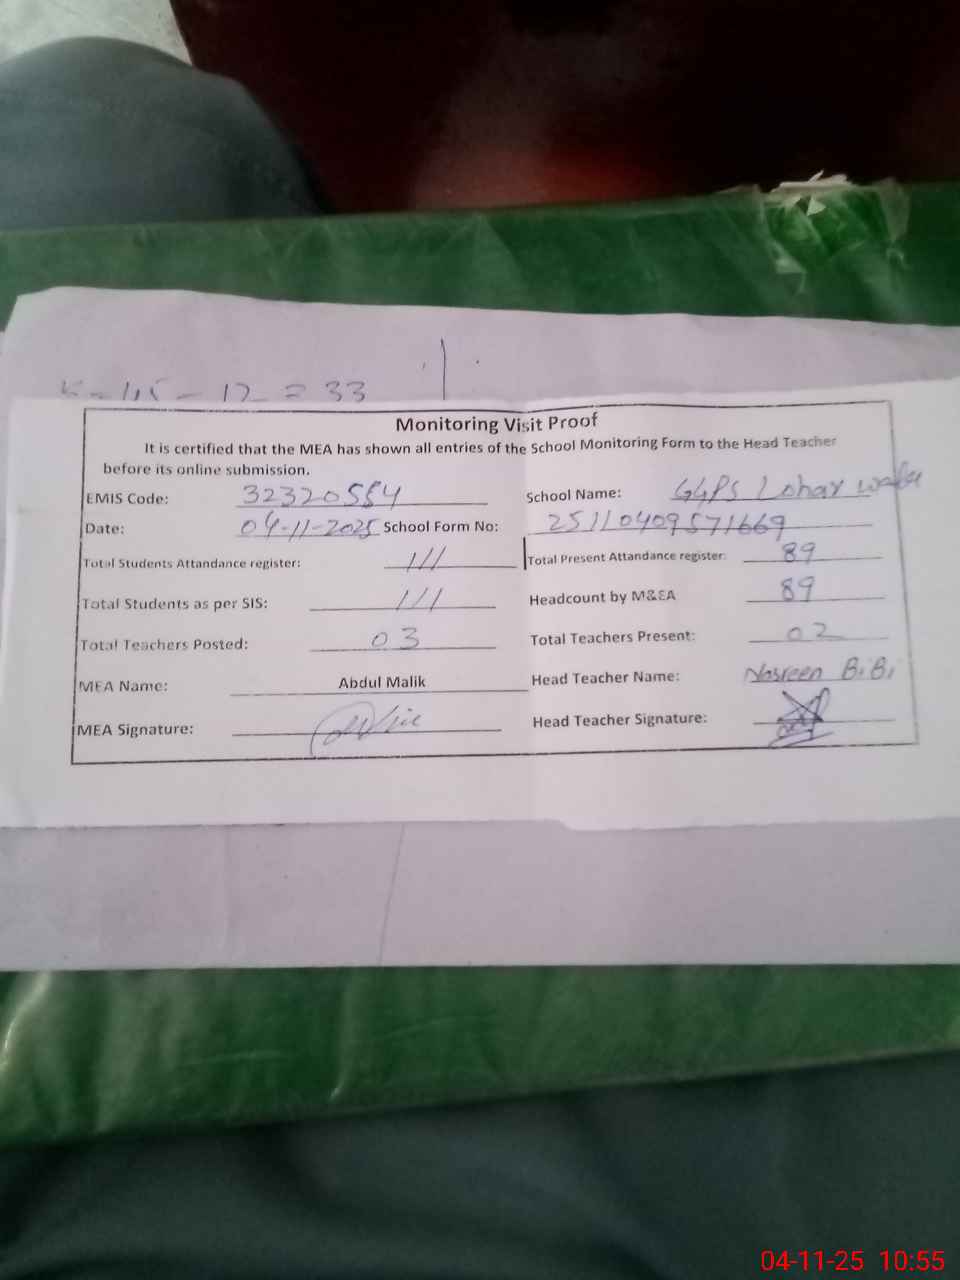 5 - 45 - 12 = 33
Monitoring Visit Proof
It is certified that the MEA has shown all entries of the School Monitoring Form to the Head Teacher
before its online submission.
EMIS Code: 32320554 School Name: GGPS Lohar wala
Date: 04-11-2025 School Form No: 25110409571669
Total Students Attandance register: 111 Total Present Attandance register: 89
Total Students as per SIS: 111 Headcount by M&EA 89
Total Teachers Posted: 03 Total Teachers Present: 02
MEA Name: Abdul Malik Head Teacher Name: Nasreen BiBi
MEA Signature: Head Teacher Signature:
04-11-25 10:55